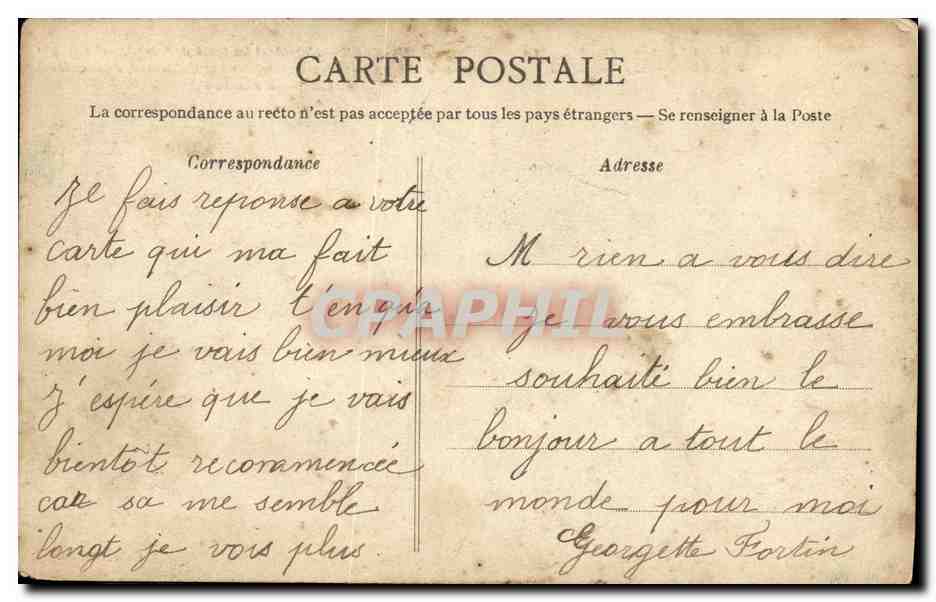 CARTE POSTALE
La correspondance au recto n'est pas acceptée par tous les pays étrangers — Se renseigner à la Poste
Correspondance
Je fais reponse a votre
carte qui ma fait
bien plaisir
moi je vais bien mieux
J'espére que je vais
bientôt recommencée
car sa me semble
longt je vois plus
Adresse
M rien a vous dire
Je vous embrasse
souhaité bien le
bonjour a tout le
monde pour moi
Georgette Fortin
CPAPHIL